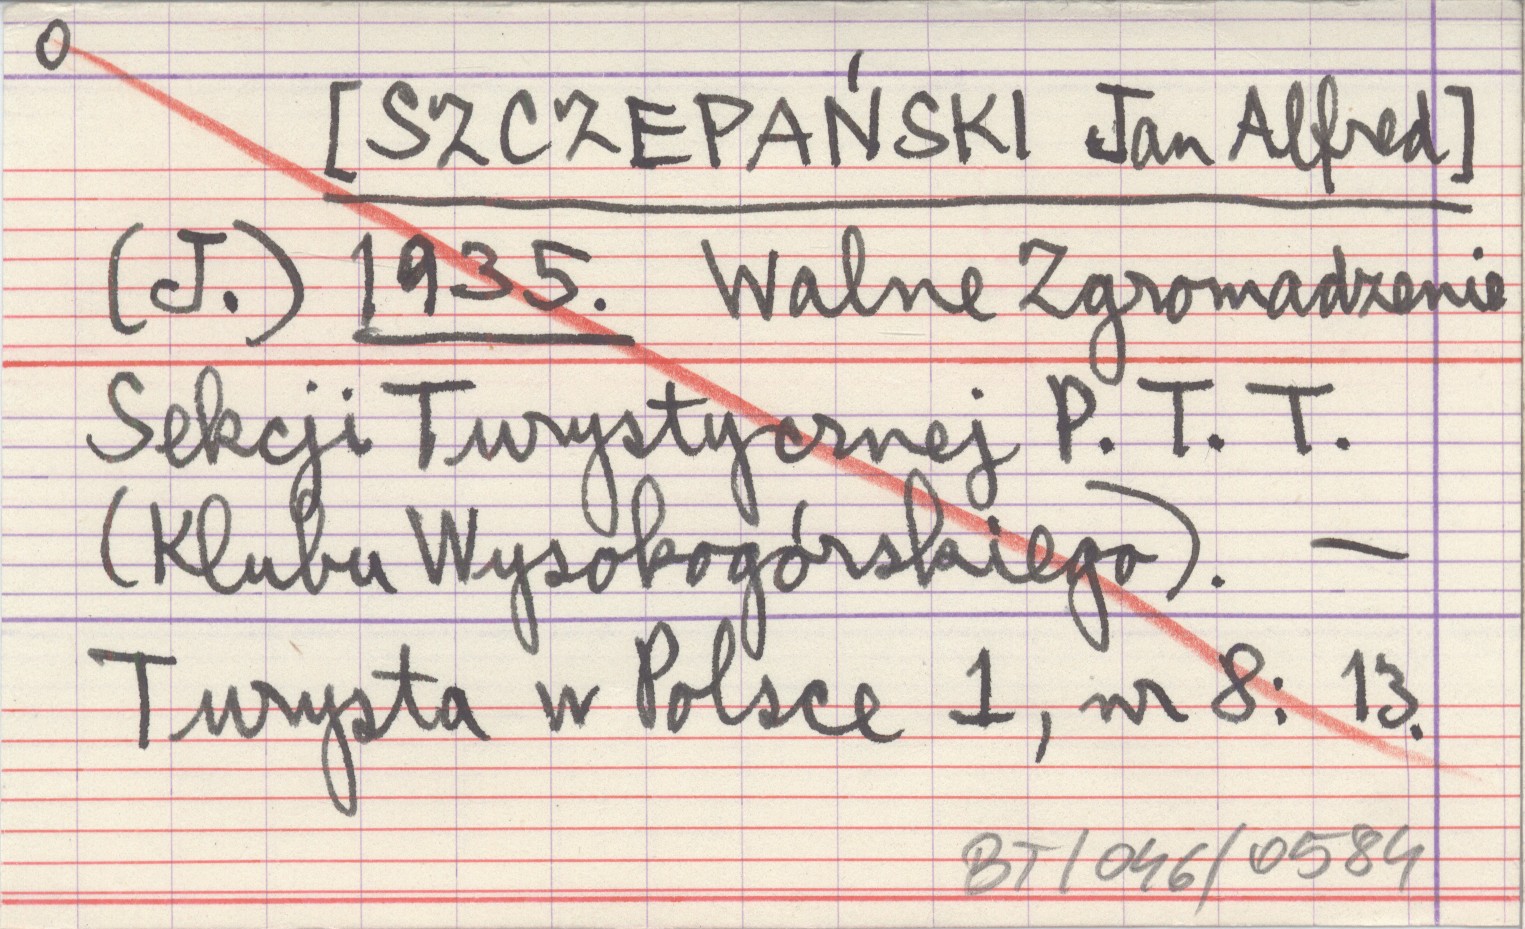 0
[SZCZEPAŃSKI Jan Alfred]
(J.) 1935. Walne Zgromadzenie
Sekcji Turystycznej P. T. T.
(Klubu Wysokogórskiego). —
Turysta w Polsce 1, nr 8: 13.
BT/046/0584